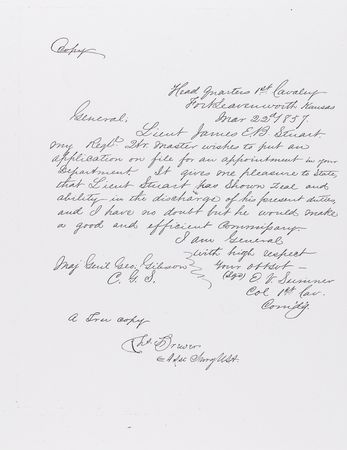 Copy
Head Quarters 1st Cavalry
Fort Leavenworth Kansas
Mar 22d 1857.
General,
Lieut James E.B. Stuart
my Regtl Qtr. Master wishes to put an
application on file for an appointment in your
Department. It gives me pleasure to State,
that Lieut Stuart has shown zeal and
ability in the discharge of his present duties,
and I have no doubt but he would make
a good and efficient Commissary.
I am General
with high respect
Your obdt
Maj Genl Geo. Gibson
C. G. S.
(Sgd) E. V. Sumner
Col 1st Cav.
Comdg
A True copy
Chs Brewer
Asst Surg USA.